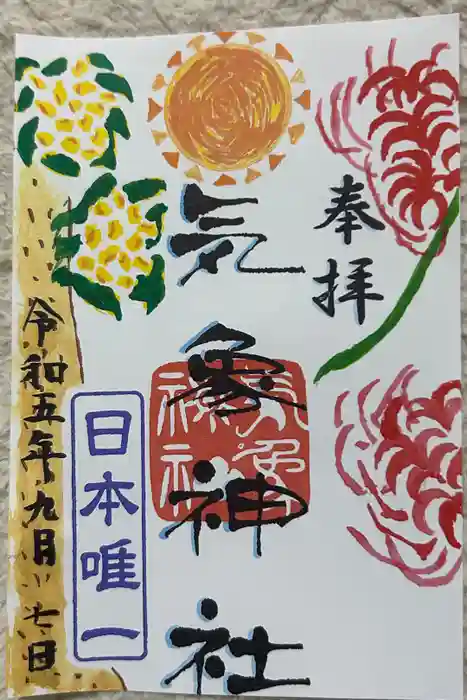 奉拝
気象神社
気象
神社
日本唯一
令和五年九月十七日